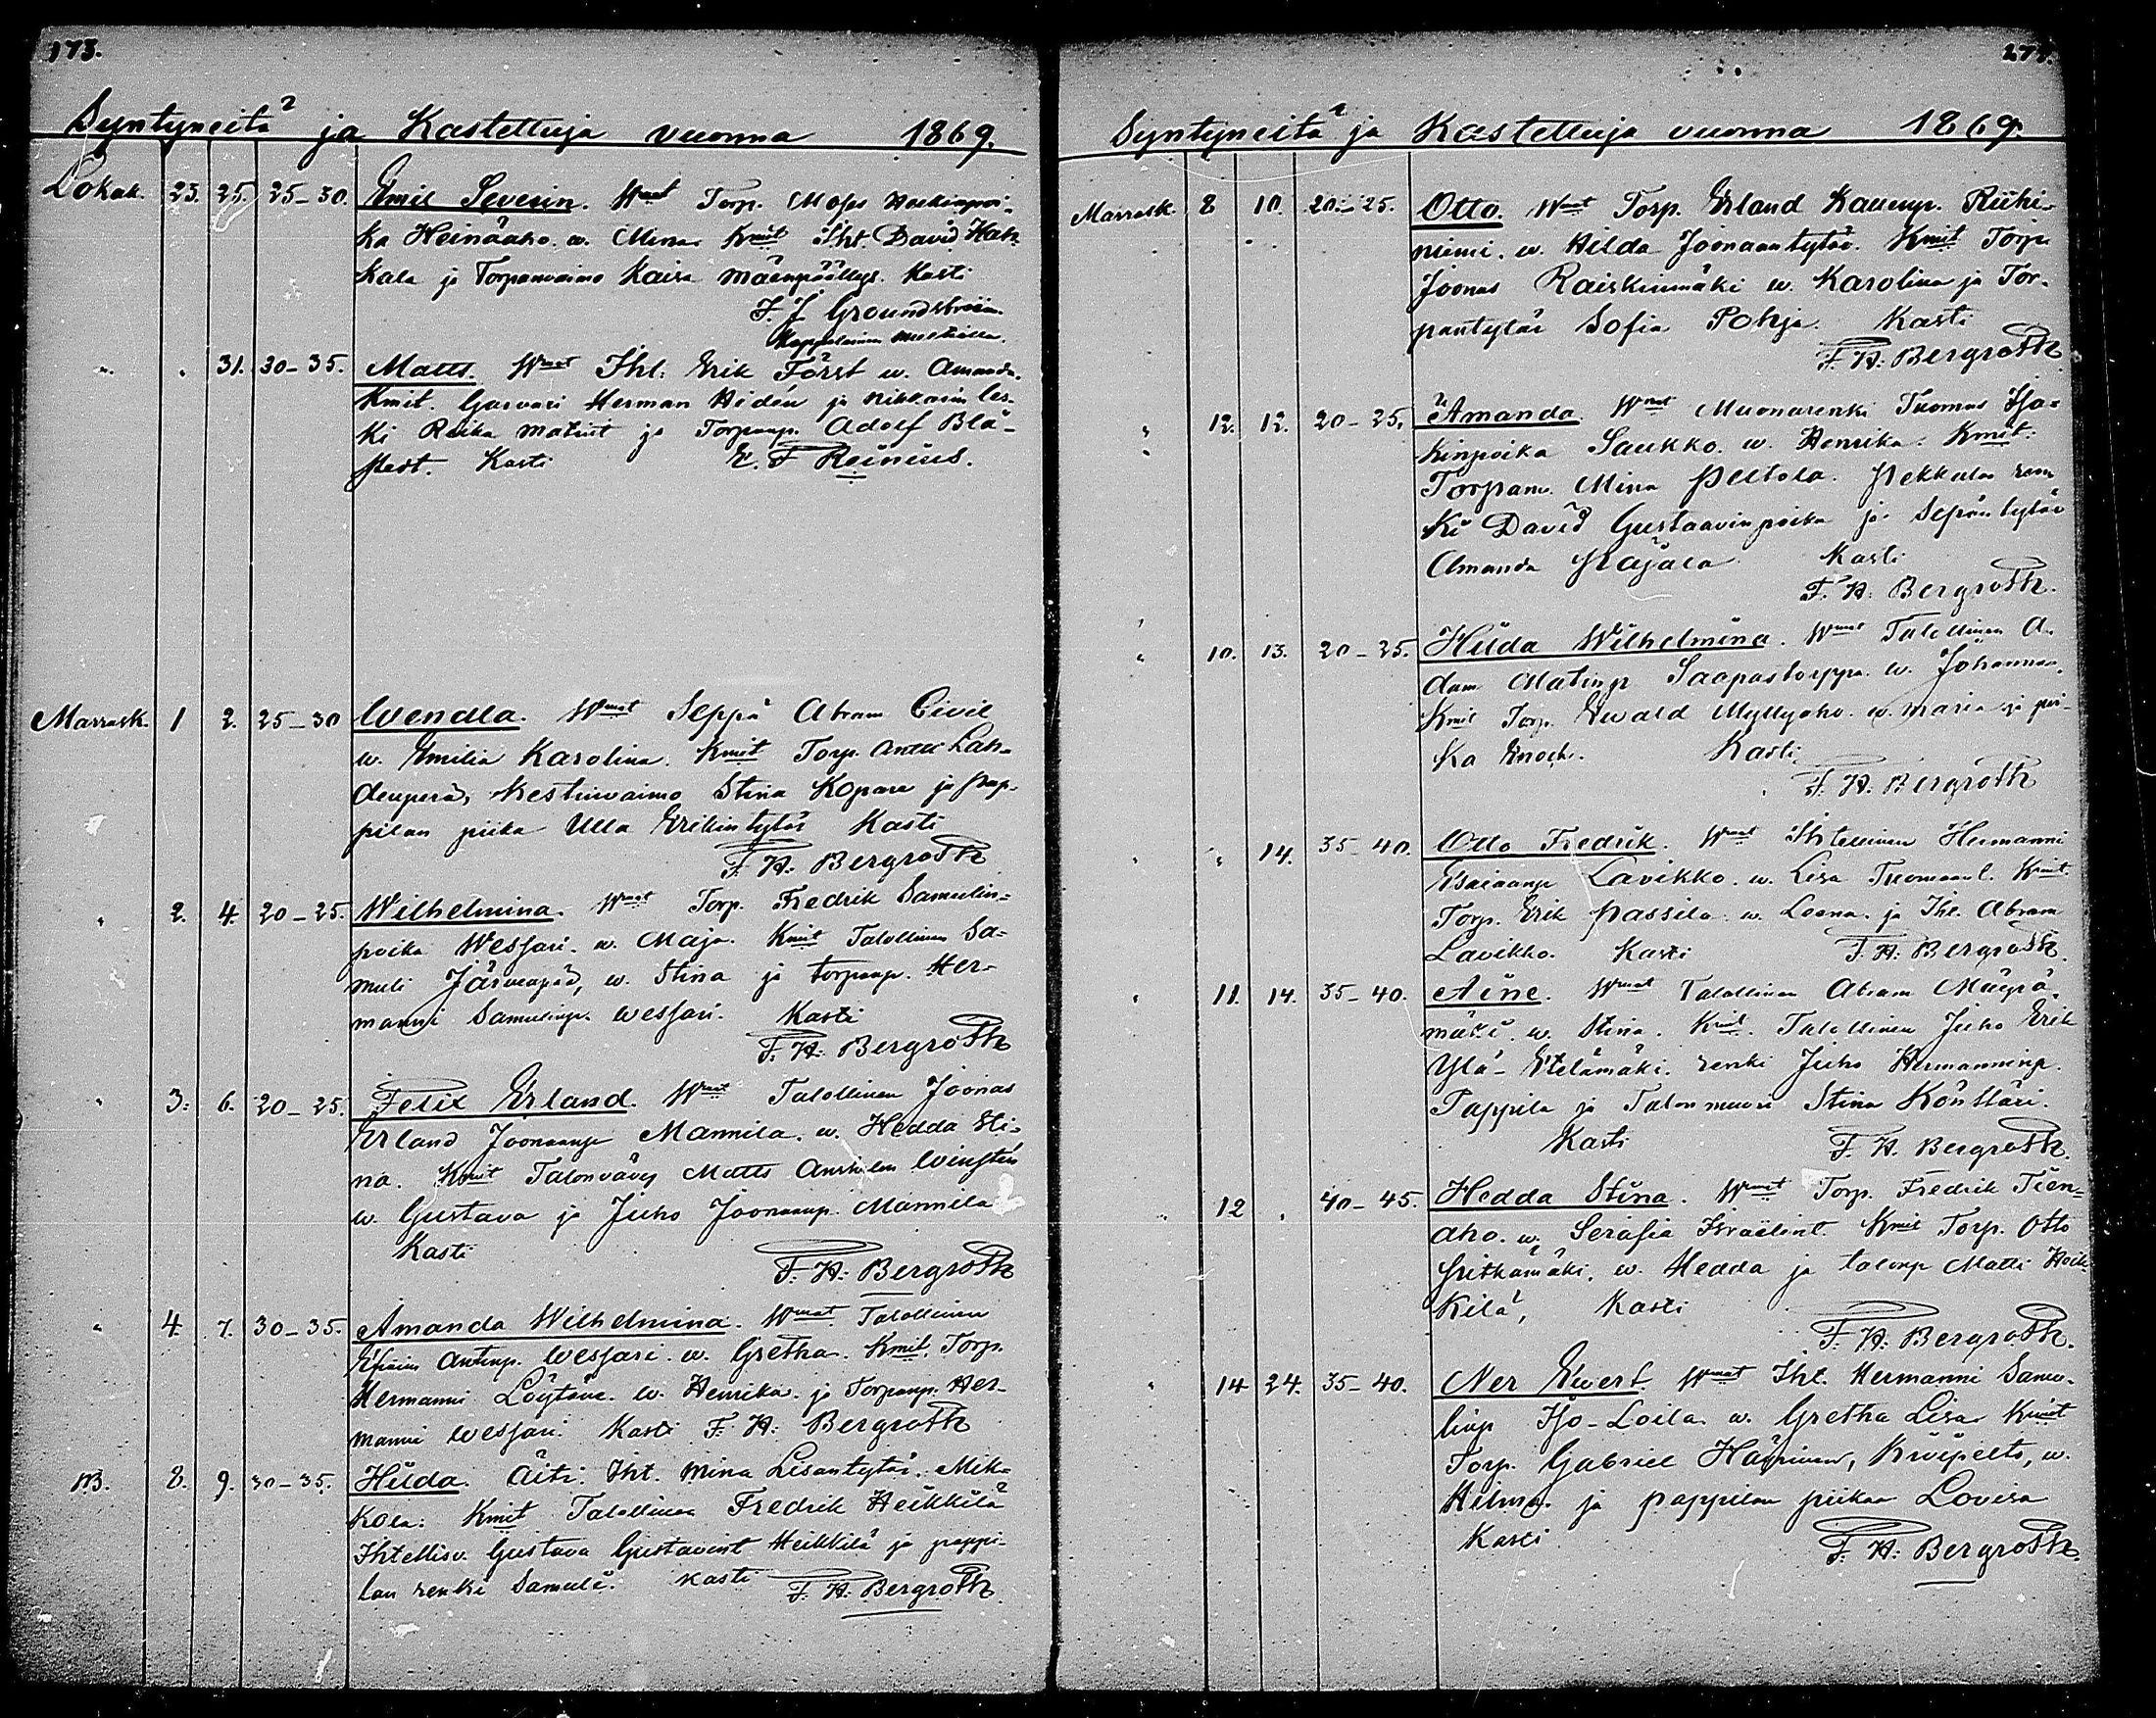 173.
Syntyneitä ja Kastettuja vuonna 1869.
Lokak. 23. 25. 25-30. Emil Severin. Wmat Torp. Heikinpoi-
ka Heinäaho. w. Mina Kmit Iht. David Kak-
kala ja Torpanvaimo Kaisa Mäenpäällys. Kasti
F. J. Groundström.
Kappalainen
" " 31. 30-35. Matts. Wmat Iht. Erik Först w. Amanda.
Kmit. Garvari Herman Hidén ja Nikkarin les-
ki Reika ja Torpanp. Adolf Blä-
stedt. Kasti E. F. Reinius.
Marrask. 1 2. 25-30 Wendla. Wmat Seppä Abram Civil
w. Emilia Karolina. Kmit Torp. Antti Lah-
denperä, Kestinvaimo Stina Kopare ja pap-
pilan piika Ulla Erikintytär Kasti
F. H. Bergroth
" 2. 4. 20-25. Wilhelmina. Wmat Torp. Fredrik Samulin-
poika Wessari. w. Maja. Kmit Talollinen Sa-
muli Järvenpää, w. Stina ja torpanp. Her-
manni Samulinp. Wessari. Kasti
F. H. Bergroth
" 3. 6. 20-25. Felix Erland. Wmat Talollinen Joonas
Erland Joonaanp Mannila. w. Hedda Sti-
na. Kmit Talonvävy Matts
w. Gustava ja Juho Joonaanp. Mannila
Kasti
F. H. Bergroth
" 4. 7. 30-35. Amanda Wilhelmina. Wmat Talollinen
Antinp. Wessari. w. Gretha. Kmit. Torp.
Hermanni Löytäne. w. Henrika. ja Torpanp. Her-
manni Wessari. Kasti F. H. Bergroth
8. 9. 30-35. Hilda. Äiti. Iht. Mina Lisantytär. Mik-
kola. Kmit Talollinen Fredrik Heikkilä
Ihtellisv. Gustava Gustavint Heikkilä ja pappi-
lan renki Samuli. Kasti F. H. Bergroth.
274.
Syntyneitä ja Kastettuja vuonna 1869.
Marrask. 8 10. 20-25. Otto. Wmat Torp. Erland Riihi-
niemi. w. Hilda Joonaantytär. Kmit Torp.
Joonas Raiskinmäki w. Karolina ja Tor-
pantytär Sofia Pohja. Kasti
F. H. Bergroth
" 12. 12. 20-25. Amanda. Wmat Muonarenki Tuomas Isa-
kinpoika Saukko. w. Henrika. Kmit.
Torpanv. Mina Peltola. Pekkalan ren
ki David Gustaavinpoika ja Sepän tytär
Amanda Rajala Kasti
F. H. Bergroth.
" 10. 13. 20-25. Hilda Wilhelmina. Wmat Talollinen A-
dam Matinp Saapastorppa. w. Johanna.
Kmit Torp. Ewald Myllyaho. w. Maria ja poi-
ka Enoch. Kasti
F. H. Bergroth
" " 14. 35-40. Otto Fredrik. Wmat Ihtellinen Hermanni
Esaiaanp Lavikko. w. Lisa Tuomaant. Kmit.
Torp. Erik Passila. w. Leena. ja Iht. Abram
Lavikko. Kasti F. H. Bergroth.
" 11. 14. 35-40. Aine. Wmat Talollinen Abram Mäyrä-
mäki. w. Stina. Kmit. Talollinen Juho Erik
Ylä-Etelämäki. renki Juho Hermanninp.
Pappila ja Talon muori Stina Könttäri.
Kasti F. H. Bergroth.
" 12 " 40-45. Hedda Stina. Wmat Torp. Fredrik Tien-
aho. w. Serafia Israelint. Kmit Torp. Otto
Pitkämäki. w. Hedda ja talonp Matti Heik-
kilä, Kasti
F. H. Bergroth.
" 14 24. 35-40. Ner Ewert. Wmat Iht. Hermanni Samu-
linp Iso-Loila. w. Gretha Lisa Kmit
Torp. Gabriel w.
Hilma. ja pappilan piikaa Lovisa
Kasti
F. H. Bergroth.